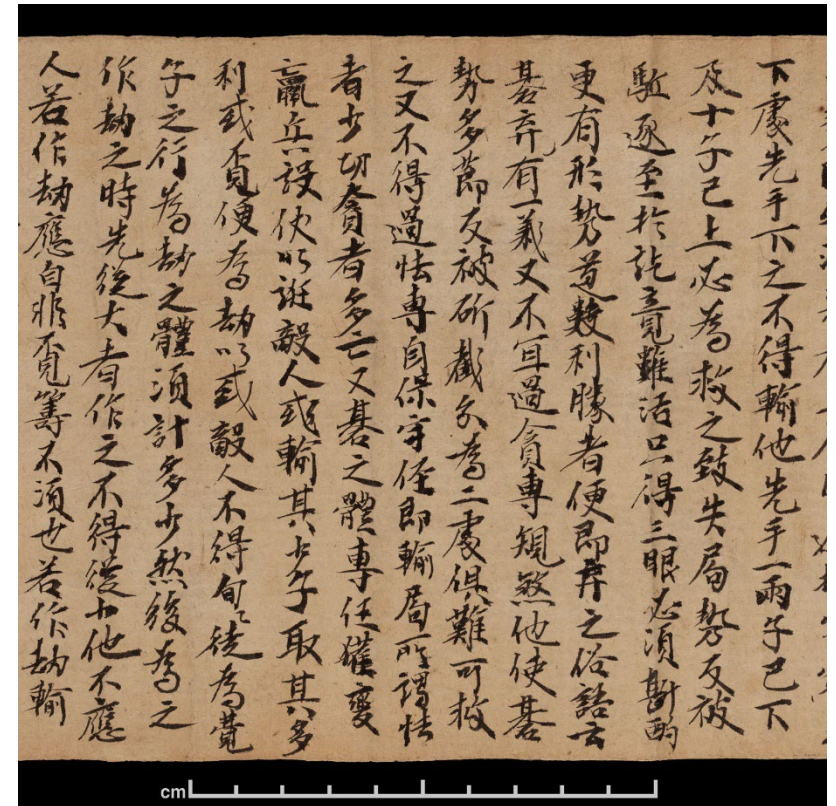 下處先手下之不得輸他先手一兩子已下
及十子已上必為救之致失局勢反被
駈逐至於詑竟雖活只得三眼必須斟酌
更有形勢道數利勝者便即弃之俗語云
碁弃有一義又不冝過貪專規煞他使碁
勢多節反被斫截分為二處俱難可救
之又不得過怯專自保守侄即輸局所謂怯
者少功貪者多亡又碁之體專任權變
羸兵設伏以誑敵人或輸其少子取其多
利或覓便為劫以或敵人不得徒為費
子之行為劫之體須計多少然後為之
作劫之時先從大者作之不得從小他不應
人若作劫應自非覓籌不須也若作劫輸
cm